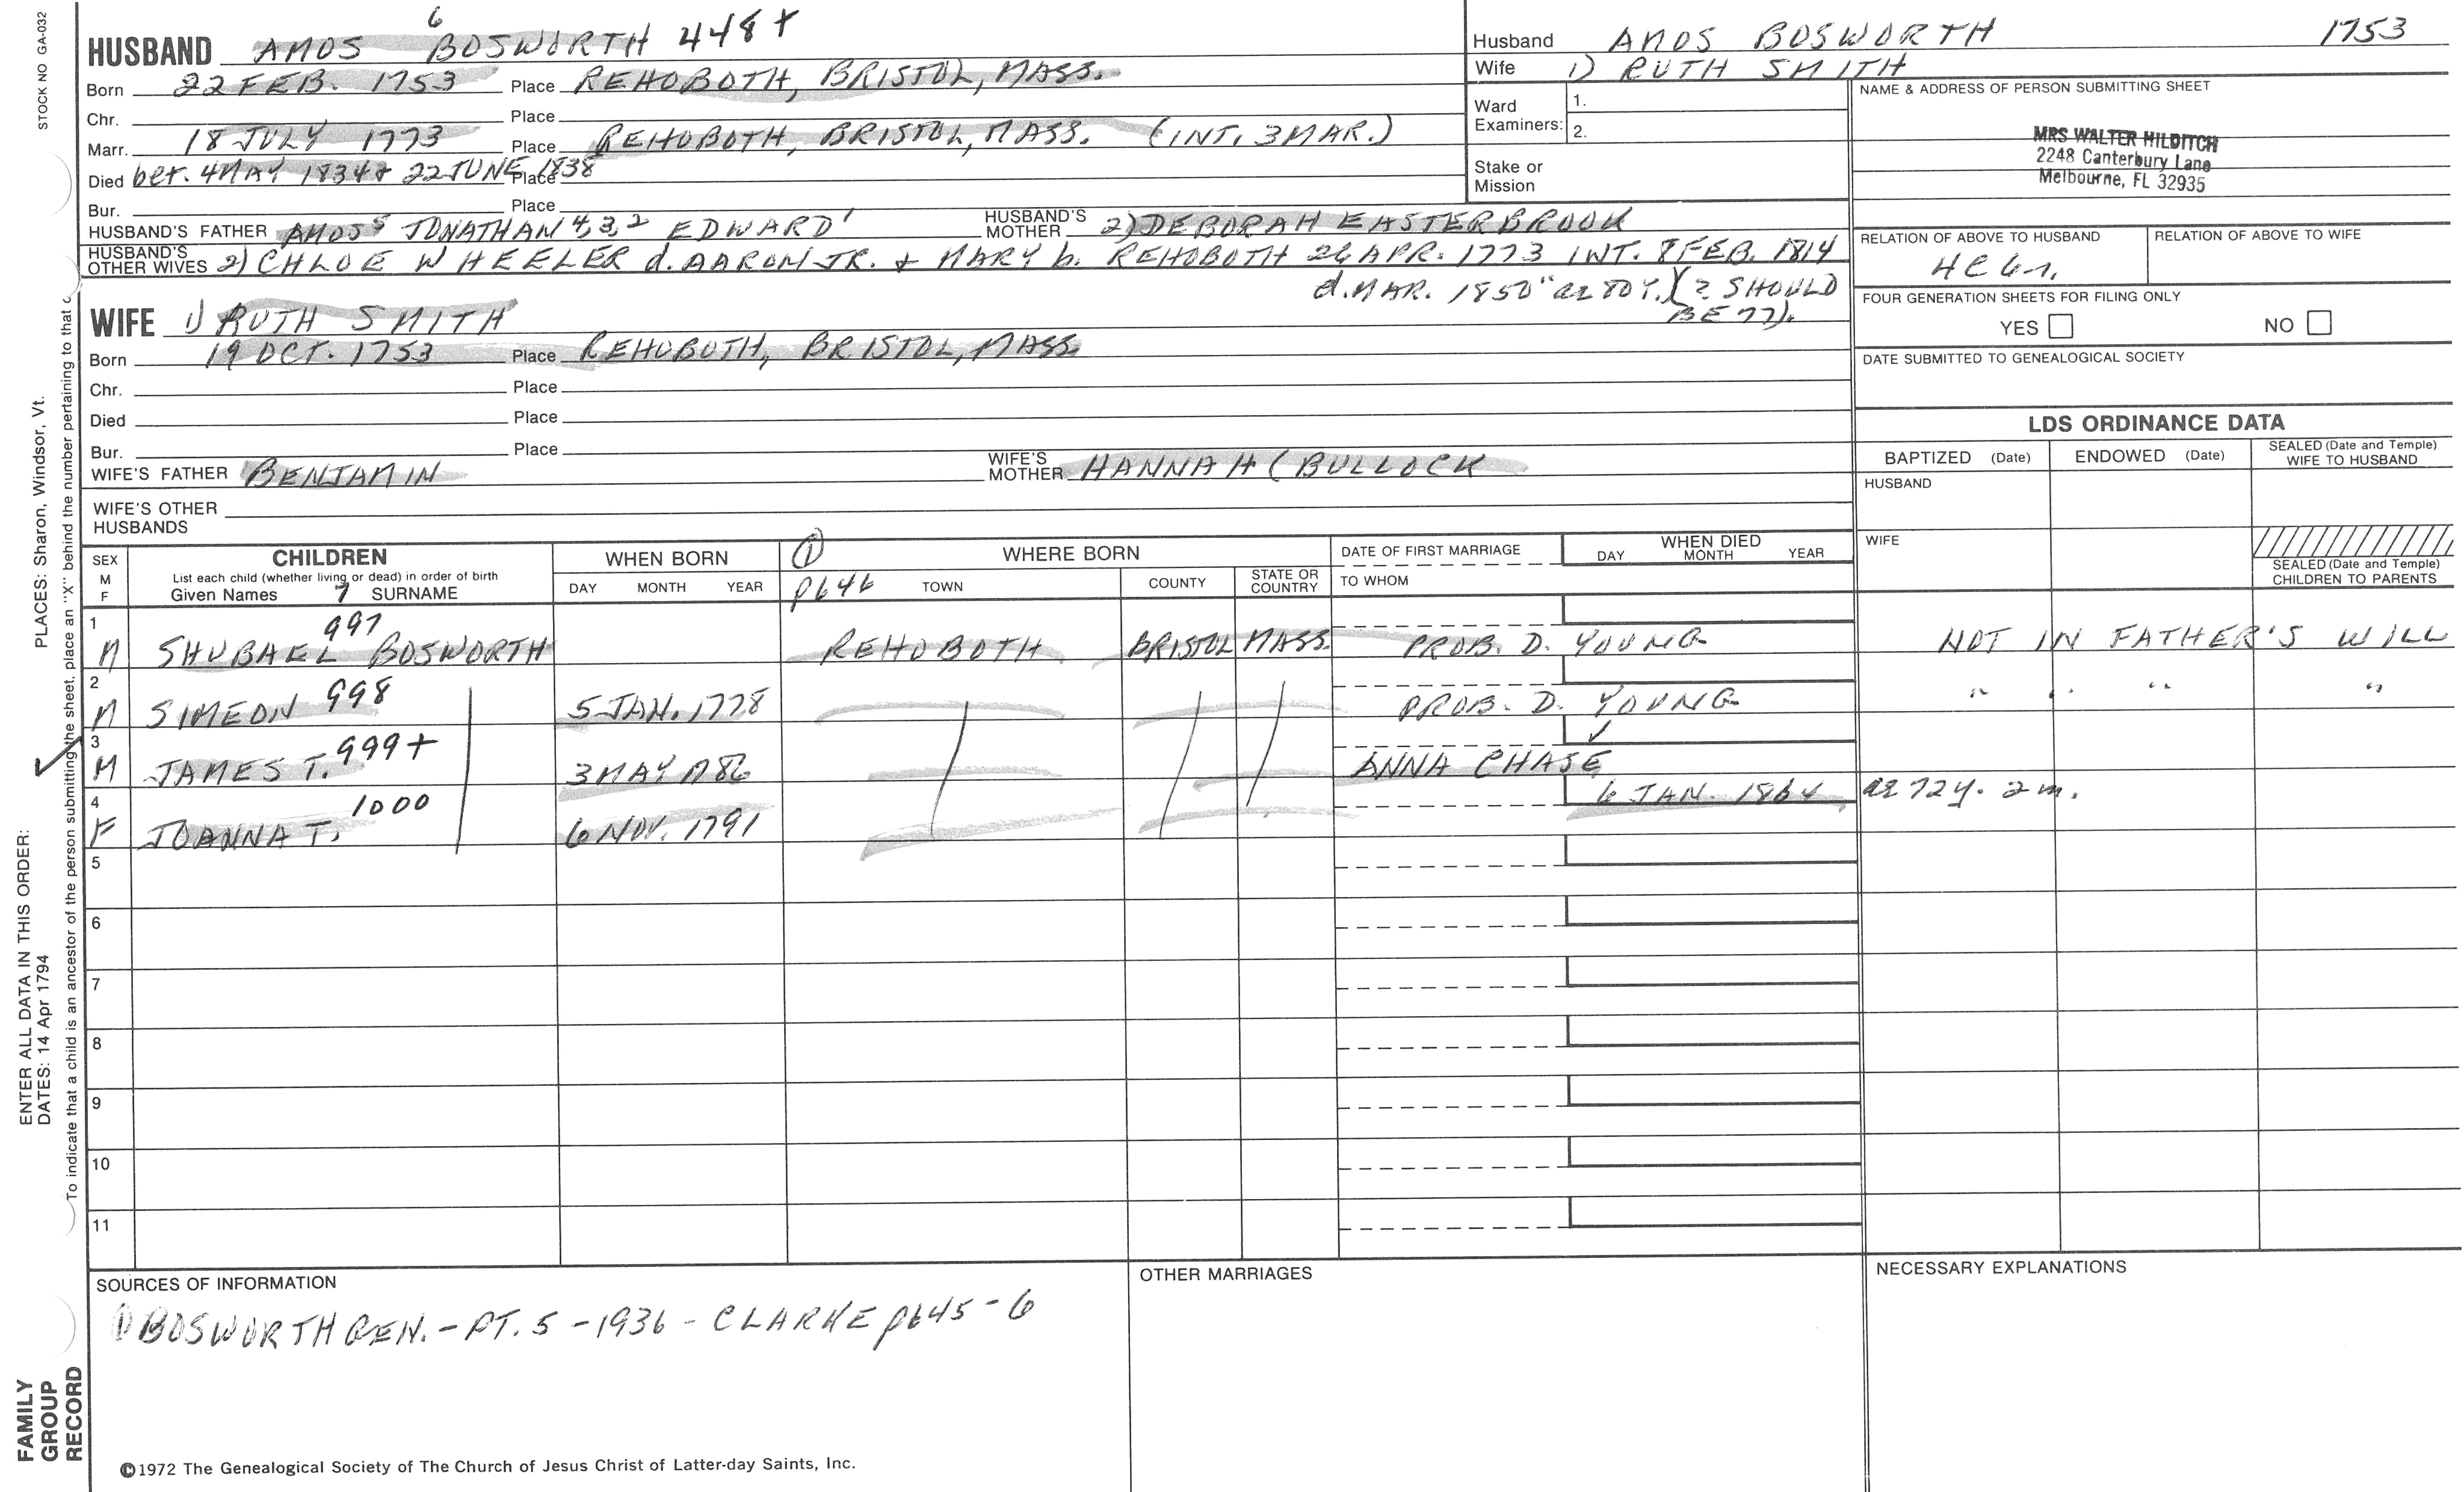 STOCK NO GA-032
PLACES: Sharon, Windsor, Vt.
ENTER ALL DATA IN THIS ORDER:
DATES: 14 Apr 1794
To indicate that a child is an ancestor of the person submitting the sheet, place an "X" behind the number pertaining to that c
FAMILY
GROUP
RECORD
6
HUSBAND AMOS BOSWORTH 448+
Born 22 FEB. 1753 Place REHOBOTH, BRISTOL, MASS.
Chr. Place
Marr. 18 JULY 1773 Place REHOBOTH, BRISTOL, MASS. (INT. 3 MAR.)
Died bet. 4 MAY 1834 + 22 JUNE 1838 Place
Bur. Place
HUSBAND'S FATHER AMOS⁵ JONATHAN⁴,³,² EDWARD¹ HUSBAND'S MOTHER 2) DEBORAH EASTERBROOK
HUSBAND'S OTHER WIVES 2) CHLOE WHEELER d. AARON JR. + MARY b. REHOBOTH 26 APR. 1773 INT. 8 FEB. 1814
d. MAR. 1850 "ae 80 Y. (? SHOULD
BE 77).
WIFE 1) RUTH SMITH
Born 19 OCT. 1753 Place REHOBOTH, BRISTOL, MASS.
Chr. Place
Died Place
Bur. Place
WIFE'S FATHER BENJAMIN WIFE'S MOTHER HANNAH (BULLOCK
WIFE'S OTHER
HUSBANDS
Husband AMOS BOSWORTH 1753
Wife 1) RUTH SMITH
Ward
Examiners: 1.
2.
Stake or
Mission
NAME & ADDRESS OF PERSON SUBMITTING SHEET
MRS WALTER HILDITCH
2248 Canterbury Lane
Melbourne, FL 32935
RELATION OF ABOVE TO HUSBAND RELATION OF ABOVE TO WIFE
FOUR GENERATION SHEETS FOR FILING ONLY
YES NO
DATE SUBMITTED TO GENEALOGICAL SOCIETY
LDS ORDINANCE DATA
BAPTIZED (Date) ENDOWED (Date) SEALED (Date and Temple) WIFE TO HUSBAND
HUSBAND
WIFE
SEALED (Date and Temple)
CHILDREN TO PARENTS
SEX
M
F
CHILDREN
List each child (whether living or dead) in order of birth
Given Names 7 SURNAME
WHEN BORN
DAY MONTH YEAR
① WHERE BORN
p646 TOWN COUNTY STATE OR COUNTRY
DATE OF FIRST MARRIAGE
TO WHOM
WHEN DIED
DAY MONTH YEAR
1 997
M SHUBAEL BOSWORTH REHOBOTH BRISTOL MASS. PROB. D. YOUNG NOT IN FATHER'S WILL
2
M SIMEON 998 5 JAN. 1778 PROB. D. YOUNG " " " "
3
M JAMES T. 999+ 3 MAY 1786 ANNA CHASE ✓
4 1000
F JOANNA T. 6 NOV. 1791 6 JAN. 1864 ae 72y. 2m.
5
6
7
8
9
10
11
SOURCES OF INFORMATION
① BOSWORTH GEN. - PT. 5 - 1936 - CLARKE p645-6
OTHER MARRIAGES
NECESSARY EXPLANATIONS
©1972 The Genealogical Society of The Church of Jesus Christ of Latter-day Saints, Inc.